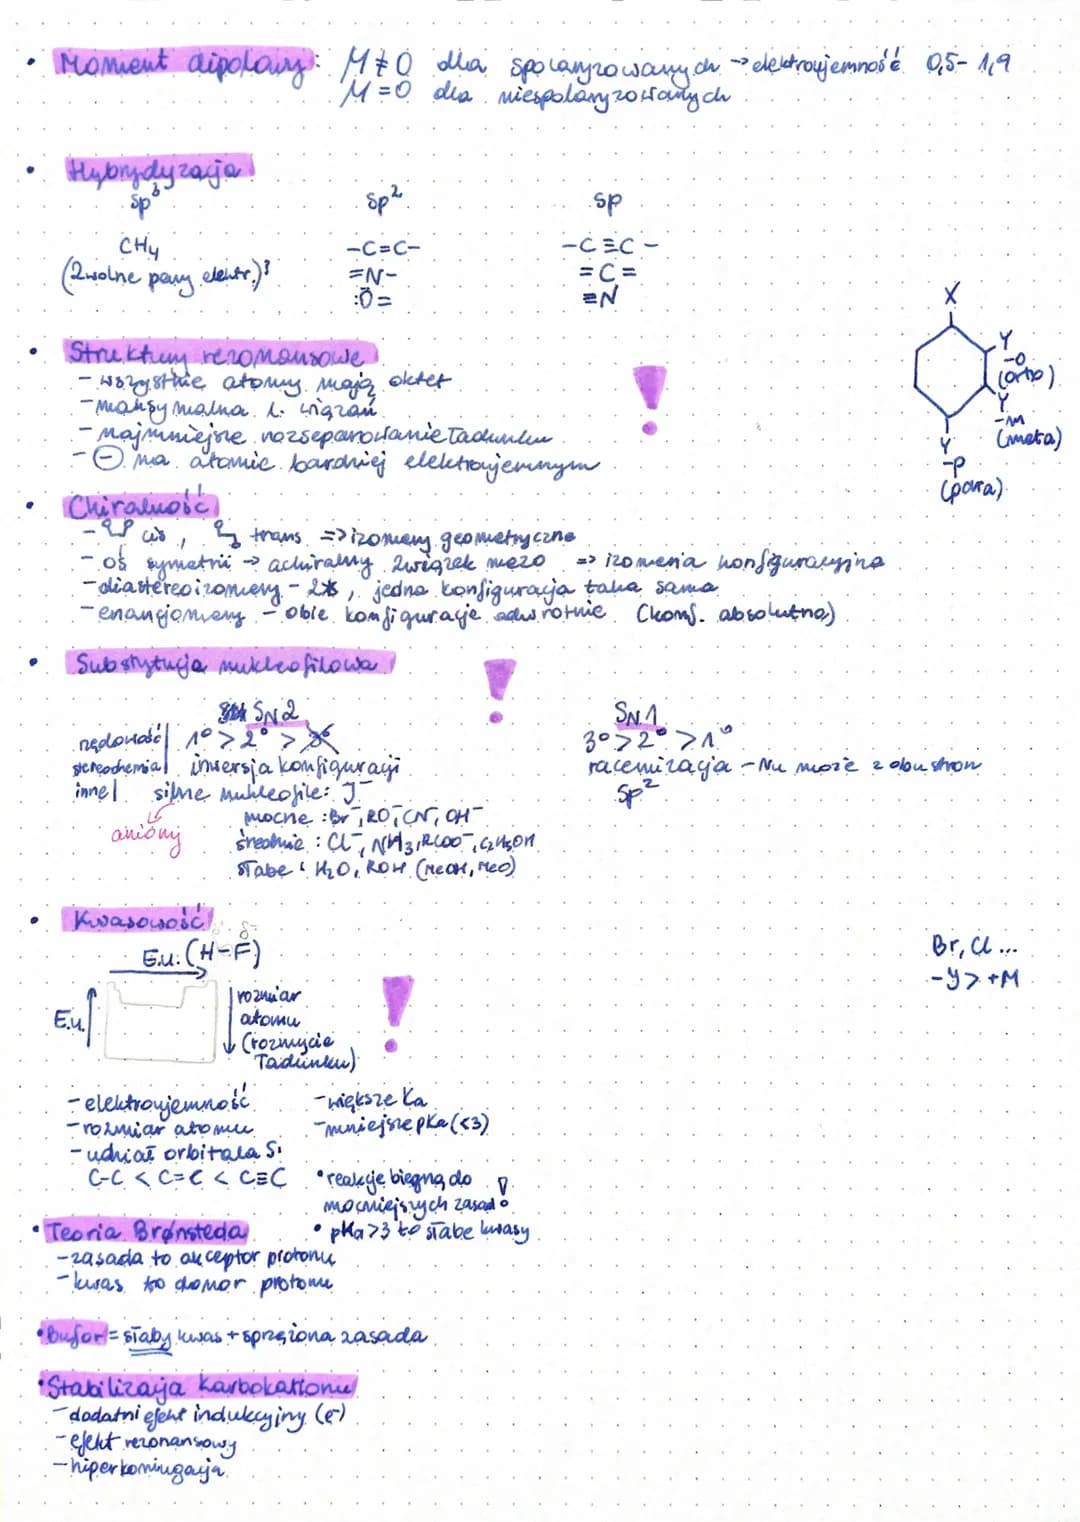 • Moment dipolowy: M ≠ 0 dla spolaryzowanych → elektroujemność 0,5-1,9
M = 0 dla niespolaryzowanych
• Hybrydyzacja
sp³ sp² sp
CH₄ -C=C- -C≡C-
(2 wolne pary elektr.)? =N- =C=
:Ö= ≡N
X
• Struktury rezonansowe
- wszystkie atomy mają oktet
- maksymalna l. wiązań
- najmniejsze rozseparowanie ładunku
- ⊖ na atomie bardziej elektroujemnym
!
Y
-o
(orto)
Y
-m
(meta)
Y
-p
(para)
• Chiralność
- cis, trans => izomery geometryczne
- oś symetrii → achiralny związek mezo => izomeria konfiguracyjna
- diastereoizomery - 2*, jedna konfiguracja taka sama
- enancjomery - obie konfiguracje odwrotnie (konf. absolutna)
• Substytucja nukleofilowa !
SN2 SN1
rzędowość| 1° > 2° > 3° 3° > 2° > 1°
stereochemia| inwersja konfiguracji racemizacja - Nu może z obu stron
inne| silne nukleofile: J⁻ sp²
aniony
mocne: Br⁻, RO⁻, CN⁻, OH⁻
średnie: Cl⁻, NH₃, RCOO⁻, C₂H₅OH
słabe: H₂O, ROH (MeOH, MeO)
• Kwasowość
δ⁻
E.u. (H-F)
E.u.
rozmiar
atomu
(rozmycie
ładunku)
!
Br, Cl...
-Y > +M
- elektroujemność - większe Ka
- rozmiar atomu - mniejsze pKa (<3)
- udział orbitala s:
C-C < C=C < C≡C • reakcje biegną do
mocniejszych zasad!
• Teoria Brønsteda • pKa>3 to słabe kwasy
- zasada to akceptor protonu
- kwas to donor protonu
• Bufor = słaby kwas + sprzężona zasada
• Stabilizacja karbokationu
- dodatni efekt indukcyjny (e⁻)
- efekt rezonansowy
- hiperkoniugacja